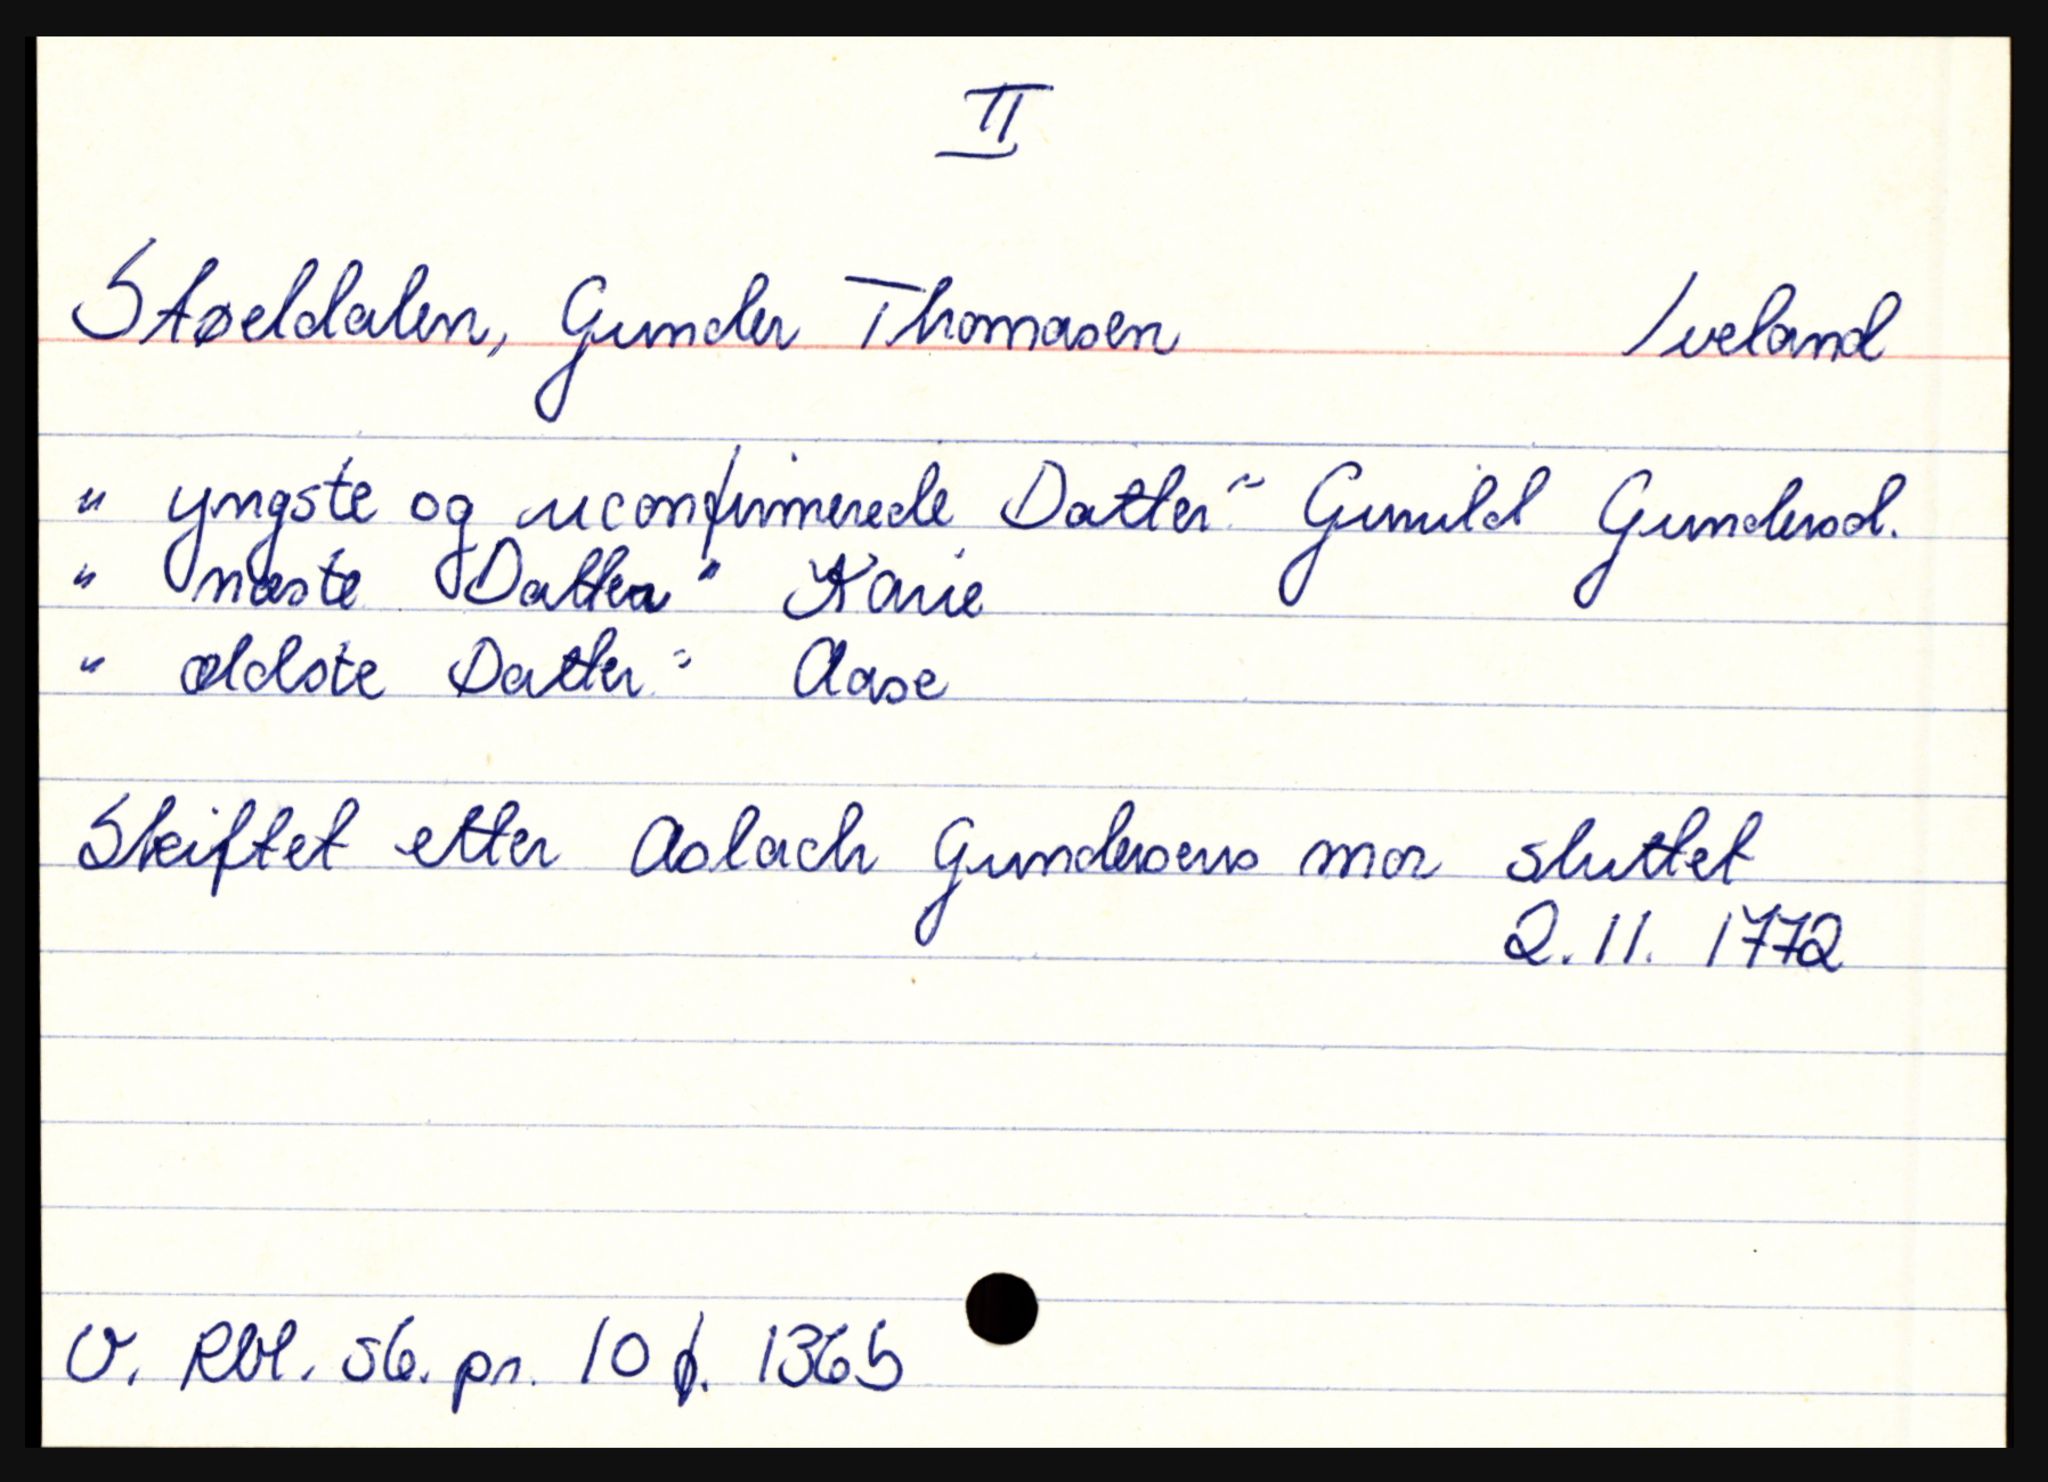 II
Støeldalen, Gunder Thomasen Iveland
" yngste og uconfirmerede Datter" Gunild Gundersd.
" næste Datter" Karie
" ældste Datter" Aase
Skiftet etter Aslach Gundersens mor sluttet
2.11. 1772
O. Rbl. sk. pr. 10 f. 136b